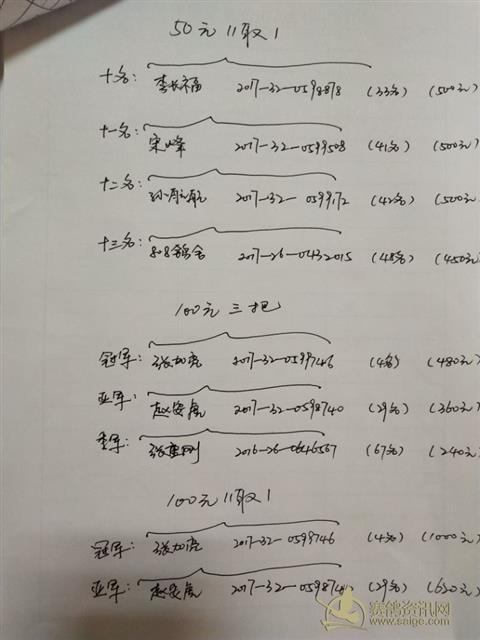 50元11取1
十名: 李长福 2017-32-0598878 (33名) (500元)
十一名: 宋峰 2017-32-0599508 (41名) (500元)
十二名: 孙航航 2017-32-0599172 (42名) (500元)
十三名: 808鸽舍 2017-26-0432015 (48名) (450元)
100元三把
冠军: 张加亮 2017-32-0599746 (4名) (480元)
亚军: 赵安虎 2017-32-0598740 (29名) (360元)
季军: 张重刚 2016-26-0646567 (67名) (240元)
100元11取1
冠军: 张加亮 2017-32-0599746 (4名) (1000元)
亚军: 赵安虎 2017-32-0598740 (29名) (620元)
赛鸽资讯网
www.saige.com